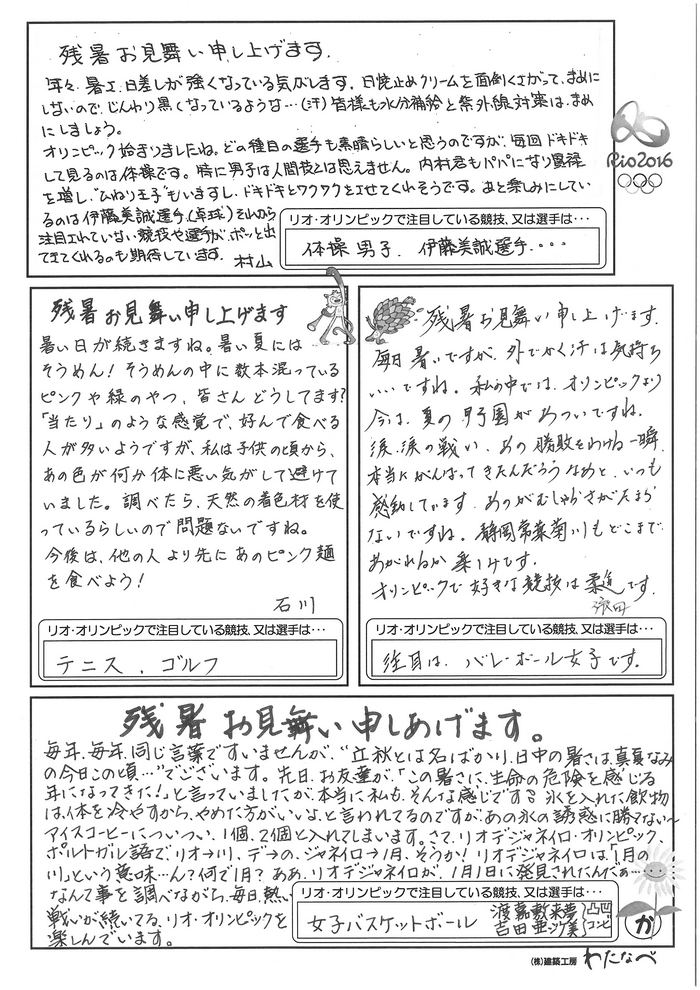 残暑お見舞い申し上げます.
年々、暑さ、日差しが強くなっている気がします。日焼止めクリームを面倒くさがって、まめに
しないので、じんわり黒くなっているような…(汗)皆様も水分補給と紫外線対策は、まめ
にしましょう。
オリンピック始まりましたね。どの種目の選手も素晴らしいと思うのですが、毎回ドキドキ
して見るのは体操です。特に男子は人間技とは思えません。内村君もパパになり貫禄
を増し、"ひねり王子"もいますし、ドキドキとワクワクをさせてくれそうです。あと楽しみにしてい
るのは伊藤美誠選手(卓球)それから
注目されていない競技や選手が、ポッと出
てきてくれるのも期待しています。 村山
リオ・オリンピックで注目している競技、又は選手は…
体操男子、伊藤美誠選手....
Rio2016
残暑お見舞い申し上げます
暑い日が続きますね。暑い夏には
そうめん!そうめんの中に数本混っている
ピンクや緑のやつ、皆さんどうしてます?
「当たり」のような感覚で、好んで食べる
人が多いようですが、私は子供の頃から、
あの色が何か体に悪い気がして避けて
いました。調べたら、天然の着色材を使
っているらしいので問題ないですね。
今後は、他の人より先にあのピンク麺
を食べよう!
石川
リオ・オリンピックで注目している競技、又は選手は…
テニス、ゴルフ
残暑お見舞い申し上げます.
毎日暑いですが、外でかく汗は気持ち
いいですね。私の中では、オリンピックより
今は、夏の野園があついですね。
涙、涙の戦い、あの勝敗をわける一瞬、
本当にがんばってきたんだろうなあと、いつも
感動しています。あのがむしゃらさがたまら
ないですね。静岡常葉菊川もどこまで、
あがれるか楽しみです。
オリンピックで好きな競技は柔道です。
リオ・オリンピックで注目している競技、又は選手は…
注目は、バレーボール女子です。
残暑お見舞い申しあげます。
毎年、毎年、同じ言葉ですいませんが、"立秋とは名ばかり、日中の暑さは、真夏なみ
の今日この頃…"でございます。先日、お友達が、「この暑さに、生命の危険を感じる
年になってきた!」と言っていましたが、本当に私も、そんな感じです。氷を入れた飲物
は、体を冷やすから、やめた方がいいよ、と言われてるのですが、あの氷の誘惑に勝てない〜
アイスコーヒーについつい、1個、2個と入れてしまいます。さて、リオデジャネイロ・オリンピック、
ポルトガル語で、リオ→川、デ→の、ジャネイロ→1月、そうか!リオデジャネイロは、「1月の
川」という意味…ん?何で1月?ああ、リオデジャネイロが、1月1日に発見されたんだぁ…
なんて事を調べながら、毎日、熱い
戦いが続いてる、リオ・オリンピックを
楽しんでいます。
リオ・オリンピックで注目している競技、又は選手は…
女子バスケットボール 渡嘉敷来夢 吉田亜沙美 凸凹コンビ
か
(株)建築工房 わたなべ